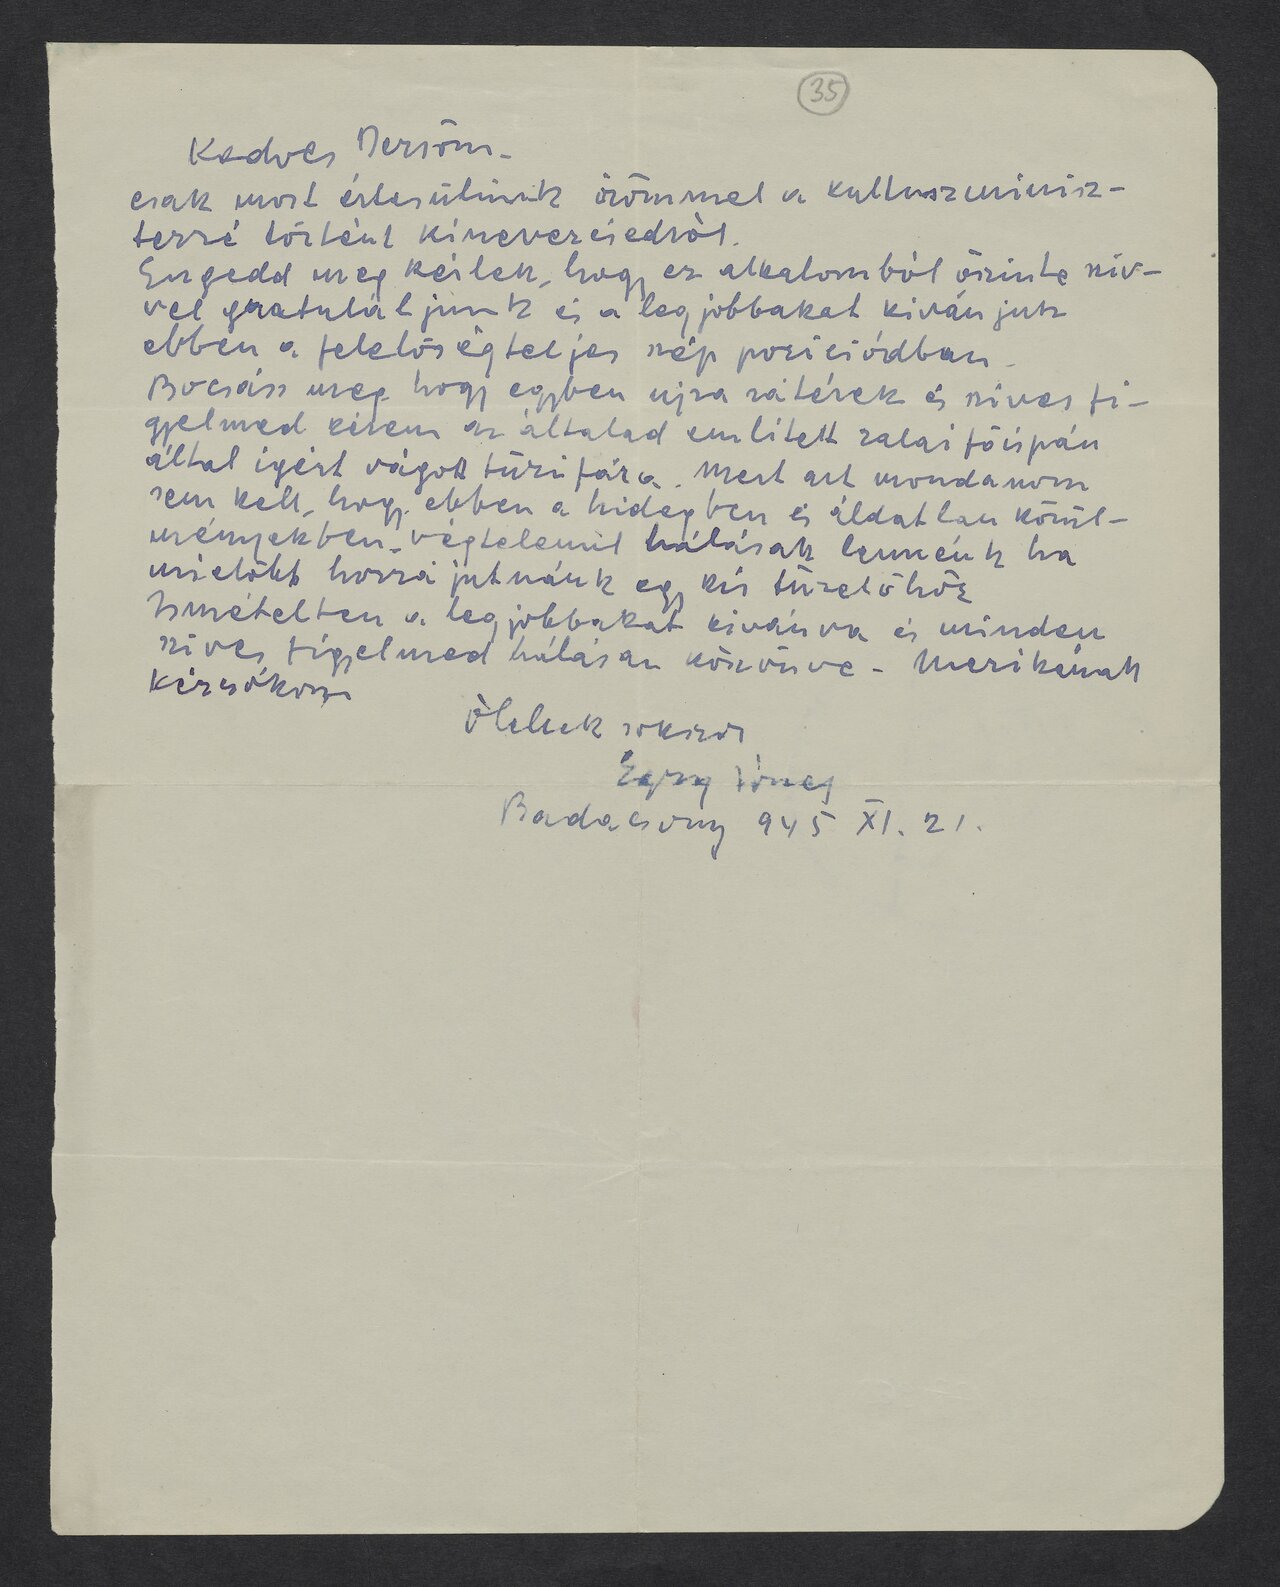 35
Kedves Dezsöm -
csak most értesülünk örömmel a kultuszminisz-
terré történt kinevezésedről.
Engedd meg kérlek, hogy ez alkalomból őszinte sziv-
vel gratuláljunk és a legjobbakat kivánjuk
ebben a felelőségteljes szép poziciódban.
Bocsáss meg hogy egyben ujra rátérek és szives fi-
gyelmed kérem az általad emlitett zalai főispán
által igért vágott tüzifára. Mert azt mondanom
sem kell, hogy ebben a hidegben és áldatlan körül-
ményekben - végtelenül hálásak lennénk ha
mielőbb hozzájutnánk egy kis tüzelőhöz
Ismételten a legjobbakat kivánva és minden
szives figyelmed hálásan köszönve -
kézcsókom
Ölelek sokszor
Egry József
Badacsony 945 XI. 21.